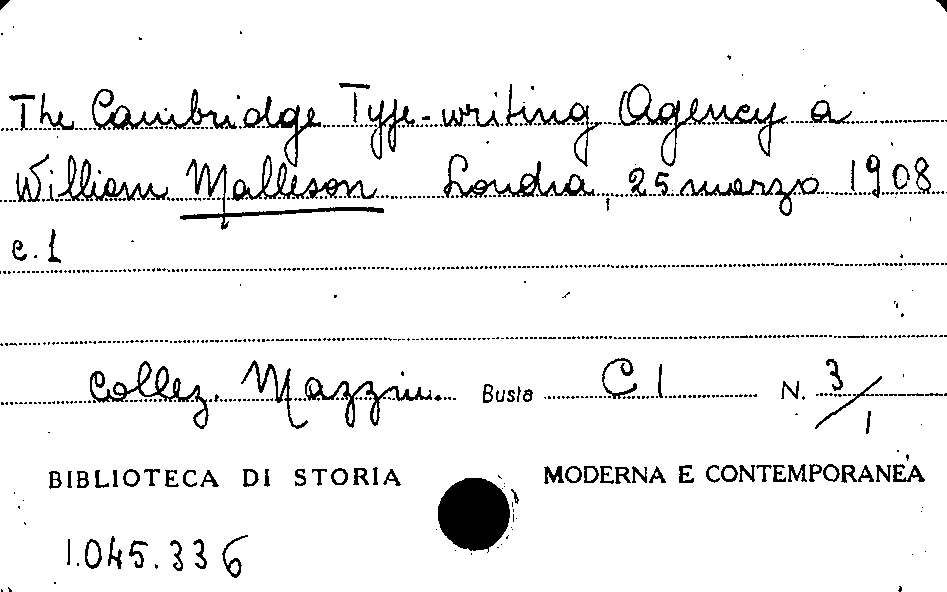 The Cambridge Type-writing Agency a
William Malleson Londra, 25 marzo 1908
c. 1
Collez. Mazzini. Busta C 1 N. 3/1
BIBLIOTECA DI STORIA MODERNA E CONTEMPORANEA
1.045.336